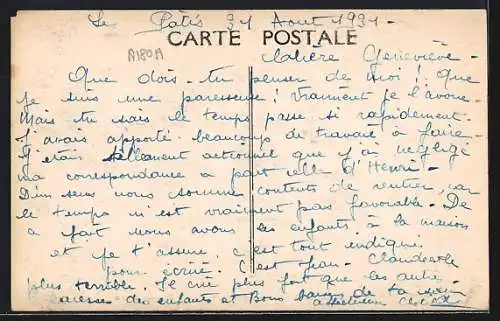 Les Patis 31 Août 1931-
CARTE POSTALE
A180A
Chère Geneviève-
Que dois-tu penser de moi! Que
je suis une paresseuse! vraiment je l'avoue-
Mais tu sais le temps passe si rapidement.
J'avais apporté beaucoup de travail à faire-
J'étais tellement que j'ai négligé
ma correspondance à part celle d'Henri-
D'un sens nous sommes contents de rentrer, car
le temps n'est vraiment pas favorable- De
fait nous avons les enfants à la maison
et je t'assure, c'est tout indiqué
pour écrire. C'est Jean-
plus terrible. Je crie plus fort que les autres-
caresses des enfants et Bons de ta